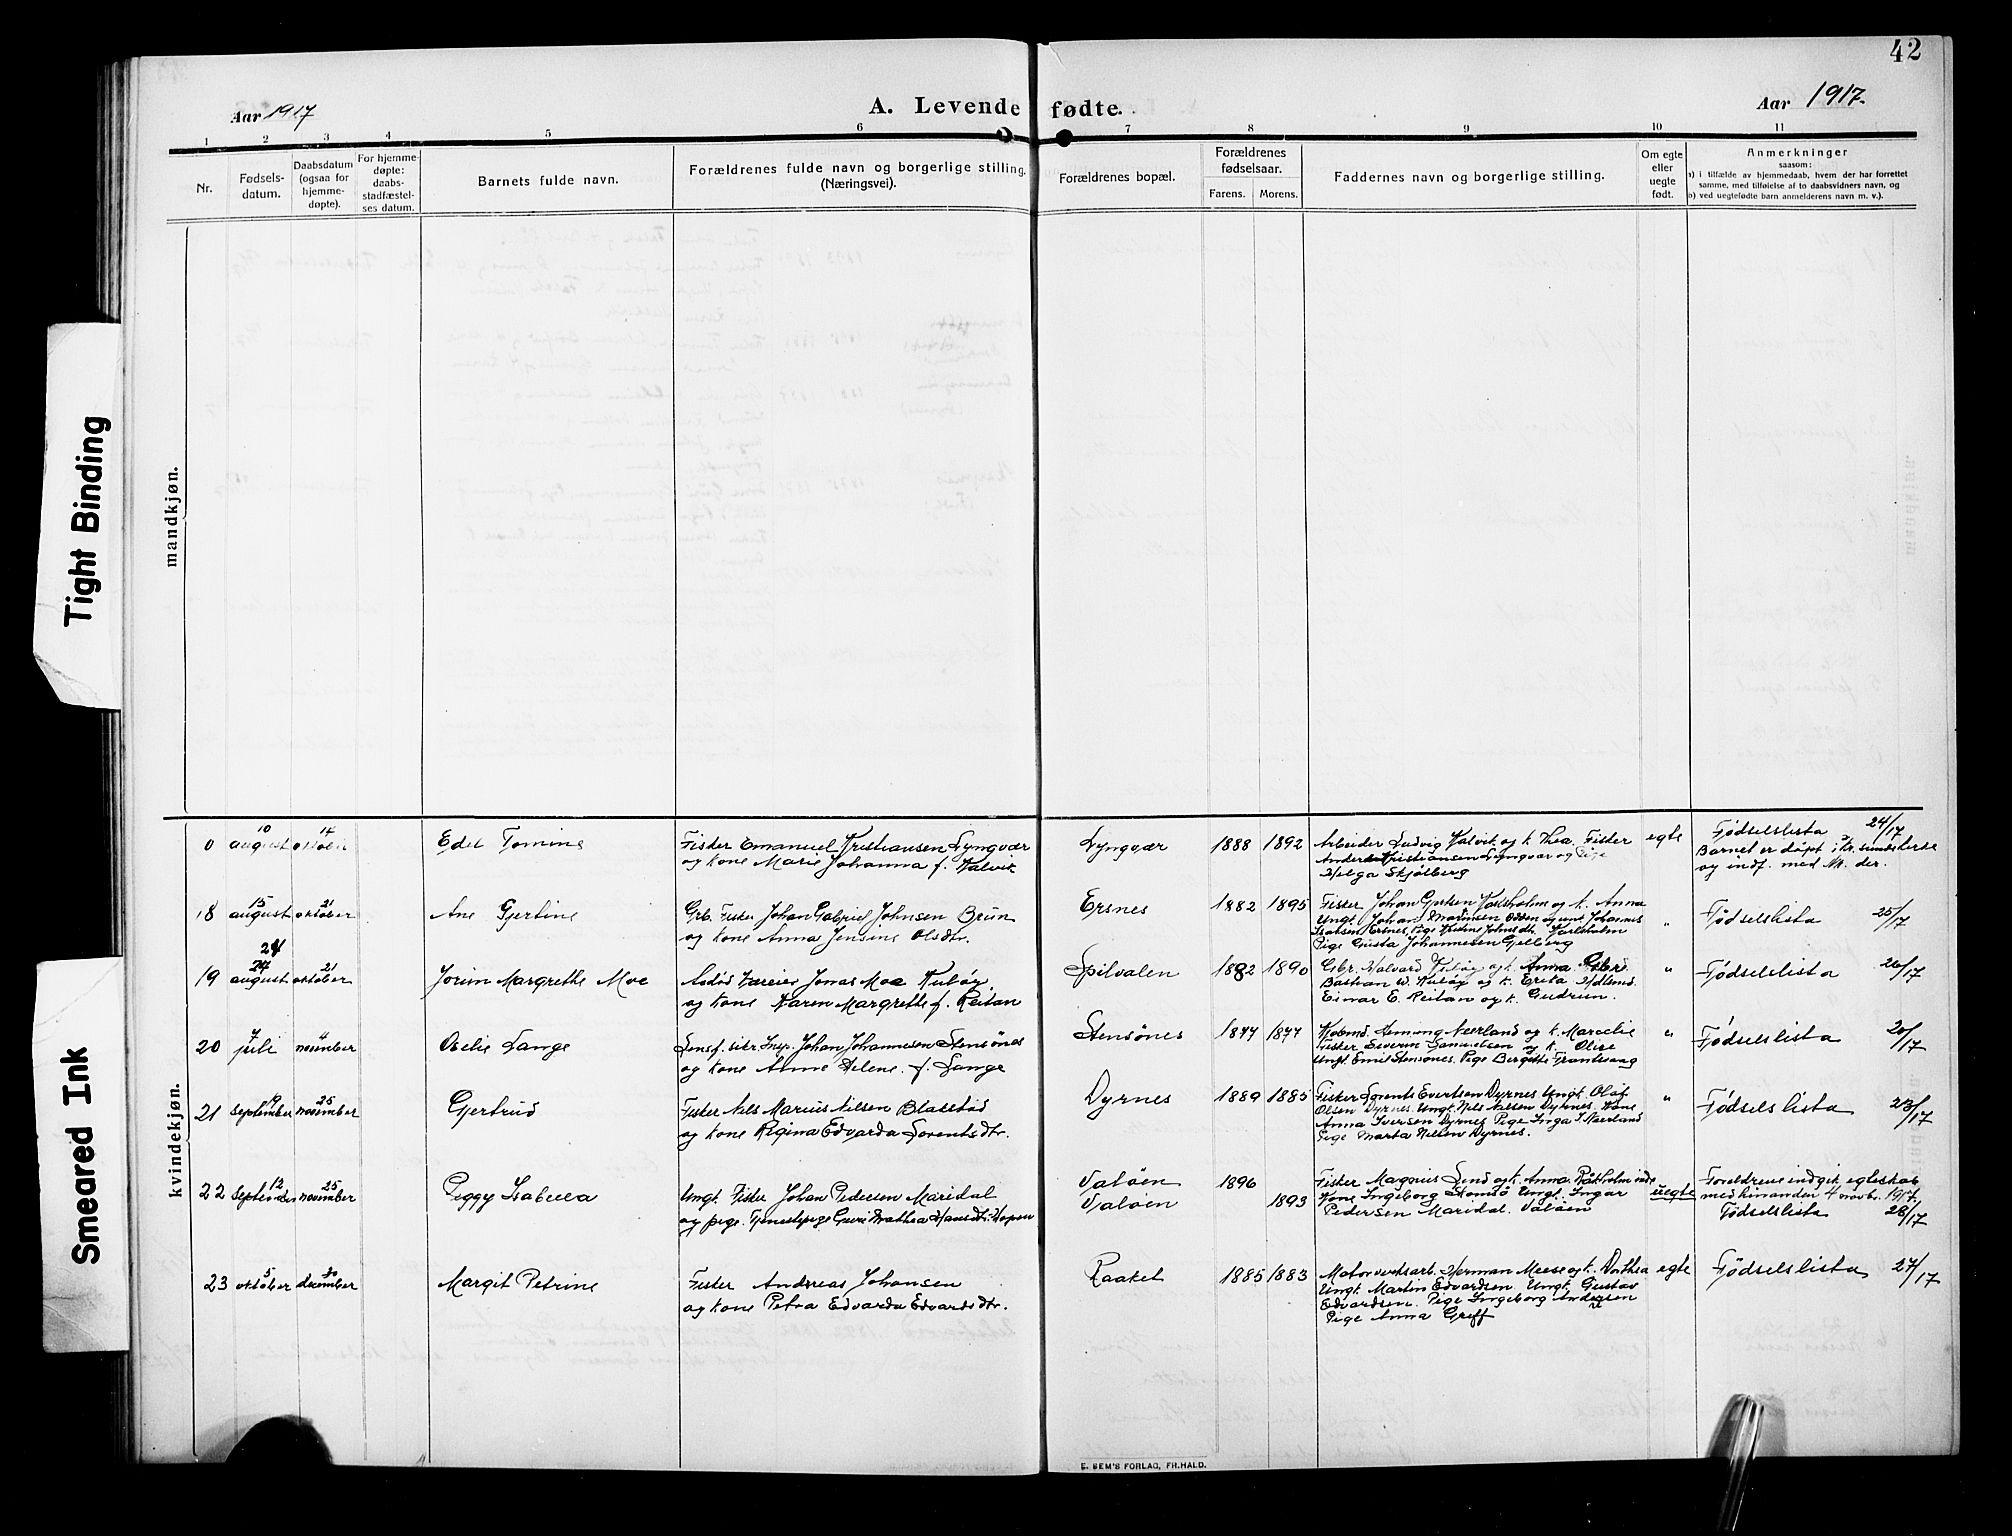 Tight Binding
Smeared Ink
42
Aar 1917
A. Levende fødte.
Aar 1917.
1 2 3 4 5 6 7 8 9 10 11
Nr.
Fødsels-
datum.
Daabsdatum
(ogsaa for
hjemme-
døpte).
For hjemme-
døpte:
daabs-
stadfæstel-
ses datum.
Barnets fulde navn.
Forældrenes fulde navn og borgerlige stilling.
(Næringsvei).
Forældrenes bopæl.
Forældrenes
fødselsaar.
Farens. Morens.
Faddernes navn og borgerlige stilling.
Om egte
eller
uegte
født.
Anmerkninger
saasom:
a) i tilfælde av hjemmedaab, hvem der har forrettet
samme, med tilføielse af to daabsvidners navn, og
b) ved uegtefødte barn anmelderens navn m. v.).
mandkjøn.
kvindekjøn.
0 10 august 14 oktober
Edel Tomine
Fisker Emanuel Kristiansen Lyngvær
og kone Marie Johanna f. Kalvik
Lyngvær
1888 1892
Arbeider Ludvig Kalvik og k. Thea. Fisker
Anders Kristiansen Lyngvær og Pige
Helga Skjølberg
egte
Fødselslista 24/17
Barnet er døpt i Kr.sunds kirke
og indf. med Nr. der.
18 15 august 21 oktober
Ane Gjertine
Grb. Fisker Johan Gabriel Johnsen Brun
og kone Anna Jensine Olsdtr.
Ersnes
1882 1895
Fisker Johan Karlsholm og k. Anna
Ungt. Johan Martinsen Odden og unt. Johannes
Isaksen Ersnes, Pige Johnsdtr. Karlsholm
Pige Gusta Johannesen Gjelberg
"
Fødselslista 25/17
19 24 24 august 21 oktober
Jorun Margrethe Moe
Jonas Moe Kuløy
og kone Karen Margrethe f. Reitan
Spilvalen
1882 1890
Gbr. Halvard Kuløy og k. Anna. Gbr.
Bastian W. Kuløy og k. Erika
Einar E. Reitan og k. Gudrun.
"
Fødselslista 26/17
20 7 juli 4 november
Oselie Lange
Lensf. sikr. Insp. Johan Johannesen Stensönes
og kone Anne Helene. f. Lange
Stensönes
1877 1877
Neerland og k. Marcelie
Fisker Severin Samuelsen og k. Oline
Ungt. Emil Stensönes. Pige Bergitte
"
Fødselslista 20/17
21 19 september 25 november
Gjertrud
Fisker Nels Marius Nilsen Blakstad
og kone Regina Edvarda Lorentsdtr.
Dyrnes
1889 1885
Fisker Lorents Evertsen Dyrnes Ungt. Olaf
Olsen Dyrnes. Ungt. Nils Nilsen Dyrnes. Kone
Anna Iversen Dyrnes Pige Inga J. Neerland
Pige Marta Nilsen Dyrnes.
"
Fødselslista 23/17
22 12 september 25 november
Peggy Isabella
Ungt. Fisker Johan Pedersen Maridal
og pige. Tjenestpige Guri Mathea Hansdtr. Hopen
Valöen
Valöen
1896
1893
Fisker Magnius Lind og k. Anna Råkholmnds
Kone Ingeborg Stomsö Ungt. Ingar
Pedersen Maridal. Valöen
uegte
Foreldrene indgik egteskab
med hinanden 4 novbr. 1917.
Fødselslista 28/17
23 5 oktober 30 december
Margit Petrine
Fisker Andreas Johansen
og kone Petra Edvarda Edvardsdtr.
Raaket
1885 1883
Motorverksarb. Herman Meese og k. Dorthea
Ungt. Martin Edvardsen Ungt. Gustav
Edvardsen. Pige Ingeborg Andersen
Pige Anna Greff
egte
Fødselslista 27/17
E. SEM'S FORLAG, FR.HALD.